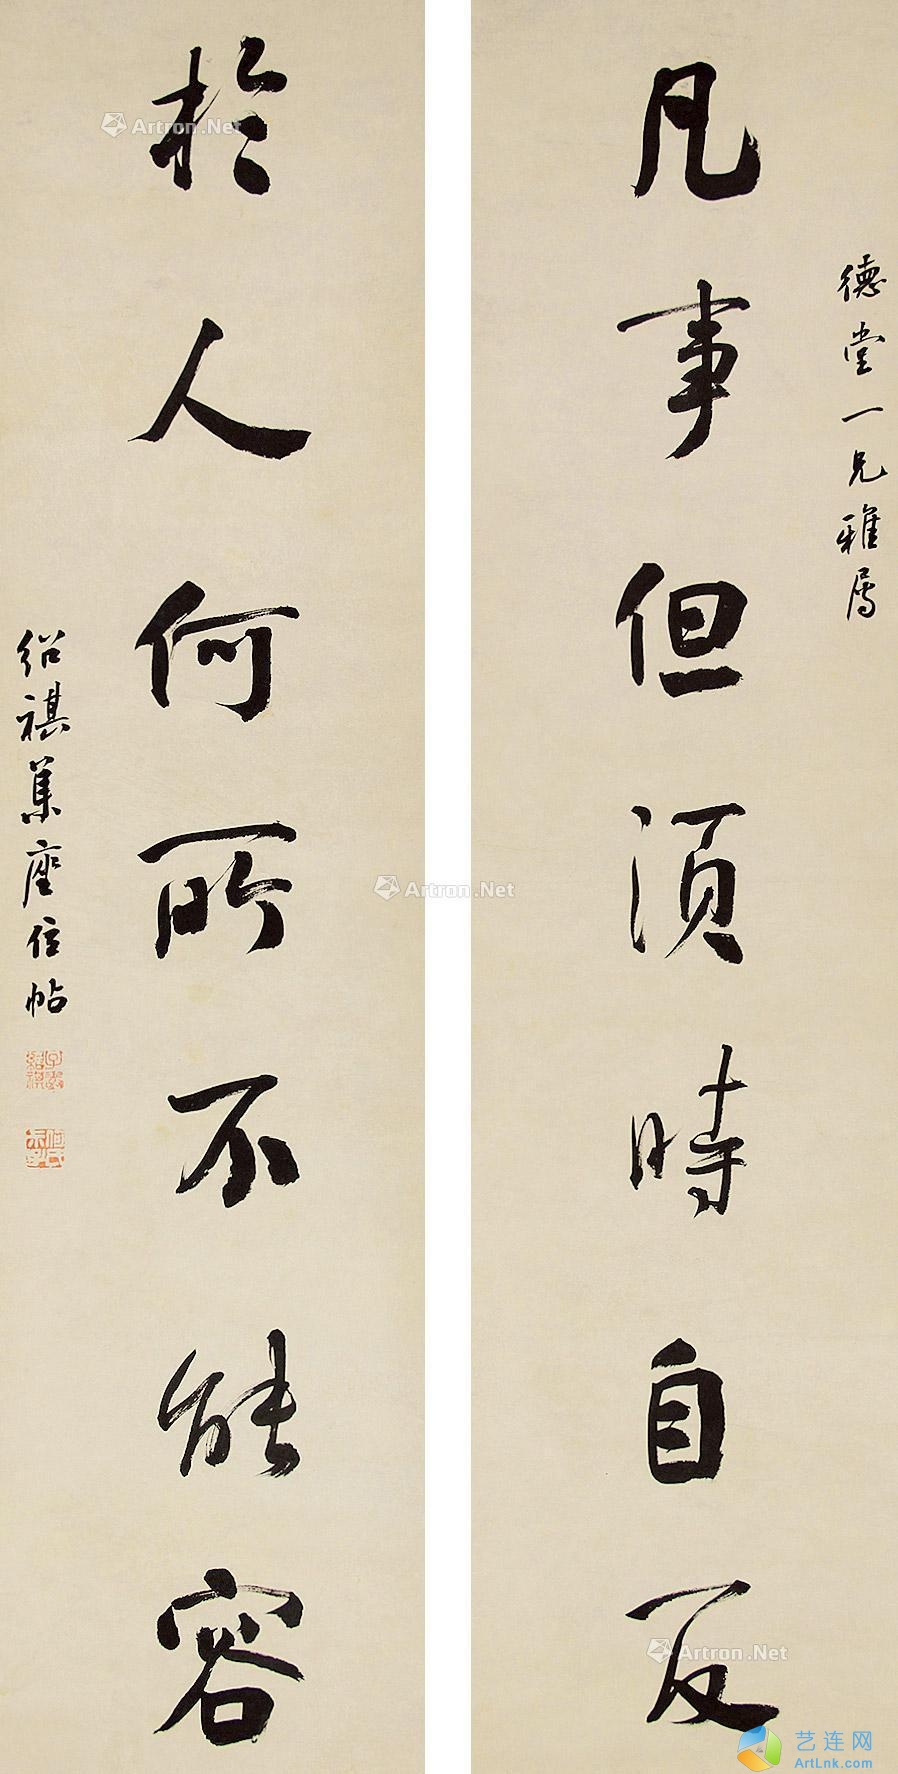 德堂一兄雅属
凡事但須時自反
於人何所不能容
绍祺集座位帖
Artron.Net
Artron.Net
Artron.Net
艺连网
ArtLnk.com